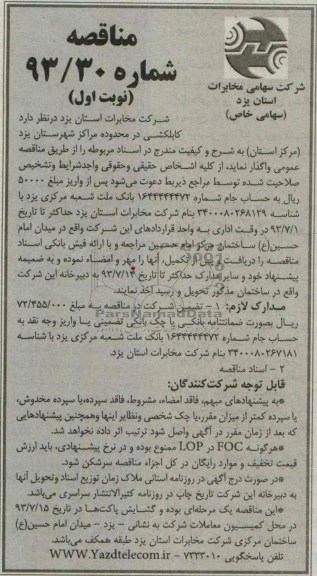 مناقصه
شماره ۹۳/۳۰
(نوبت اول)
شرکت سهامی مخابرات
استان یزد
(سهامی خاص)
شرکت مخابرات استان یزد درنظر دارد
کابلکشی در محدوده مراکز شهرستان یزد
(مرکز استان) به شرح و کیفیت مندرج در اسناد مربوطه را از طریق مناقصه
عمومی واگذار نماید، از کلیه اشخاص حقیقی وحقوقی واجدشرایط وتشخیص
صلاحیت شده توسط مراجع ذیربط دعوت می‌شود پس از واریز مبلغ ۵۰۰۰۰
ریال به حساب جام شماره ۱۶۴۴۴۴۴۷۲ بانک ملت شعبه مرکزی یزد با
شناسه ۳۴۰۰۰۸۰۲۶۸۱۲۹ بنام شرکت مخابرات استان یزد حداکثر تا تاریخ
۹۳/۷/۱ در وقت اداری به واحد قراردادهای این شرکت واقع در میدان امام
حسین(ع) ساختمان مرکز امام حسین مراجعه و با ارائه فیش بانکی اسناد
مناقصه را دریافت و پس از تکمیل، آنها را مهر و امضاء نموده و به ضمیمه
پیشنهاد خود و سایر مدارک حداکثر تا تاریخ ۹۳/۷/۱۴ به دبیرخانه این شرکت
واقع در ساختمان مذکور تحویل و رسید اخذ نمایند.
مدارک لازم: ۱ - تضمین شرکت در مناقصه به مبلغ ۷۲/۴۵۵/۰۰۰
ریال بصورت ضمانتنامه بانکی یا چک بانکی تضمینی یا واریز وجه نقد به
حساب جام شماره ۱۶۴۴۴۴۴۷۲ بانک ملت شعبه مرکزی یزد با شناسه
۳۴۰۰۰۸۰۲۶۷۱۸۱ بنام شرکت مخابرات استان یزد.
۲ - اسناد مناقصه
قابل توجه شرکت‌کنندگان:
*به پیشنهادهای مبهم، فاقد امضاء، مشروط، فاقد سپرده،با سپرده مخدوش،
یا سپرده کمتر از میزان مقرر،یا چک شخصی ونظایر اینها وهمچنین پیشنهادهایی
که بعد از زمان مقرر در آگهی واصل شود ترتیب اثر داده نخواهد شد.
*هرگونه FOC در LOP ممنوع بوده و در نرخ پیشنهادی، باید ارزش
قیمت تخفیف و موارد رایگان در کل اجزاء مناقصه سرشکن شود.
*در صورت درج آگهی در روزنامه استانی ملاک زمان توزیع اسناد وتحویل آنها
به دبیرخانه این شرکت تاریخ چاپ در روزنامه کثیرالانتشار سراسری می‌باشد.
*این مناقصه یک مرحله‌ای بوده و گشایش پاکت‌ها در تاریخ ۹۳/۷/۱۵
در محل کمیسیون معاملات شرکت به نشانی - یزد - میدان امام حسین(ع)
ساختمان مرکزی شرکت مخابرات استان یزد طبقه همکف می‌باشد.
تلفن پاسخگویی ۷۳۳۳۰۱۰ - WWW.Yazdtelecom.ir
ParsNamadData